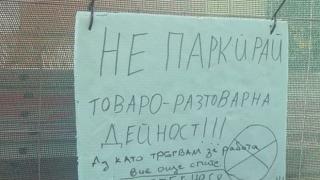 НЕ ПАРКИРАЙ
ТОВАРО-РАЗТОВАРНА
ДЕЙНОСТ!!!
АЗ КАТО ТРЪГВАМ ЗА РАБОТА
ВИЕ ОЩЕ СПИТЕ